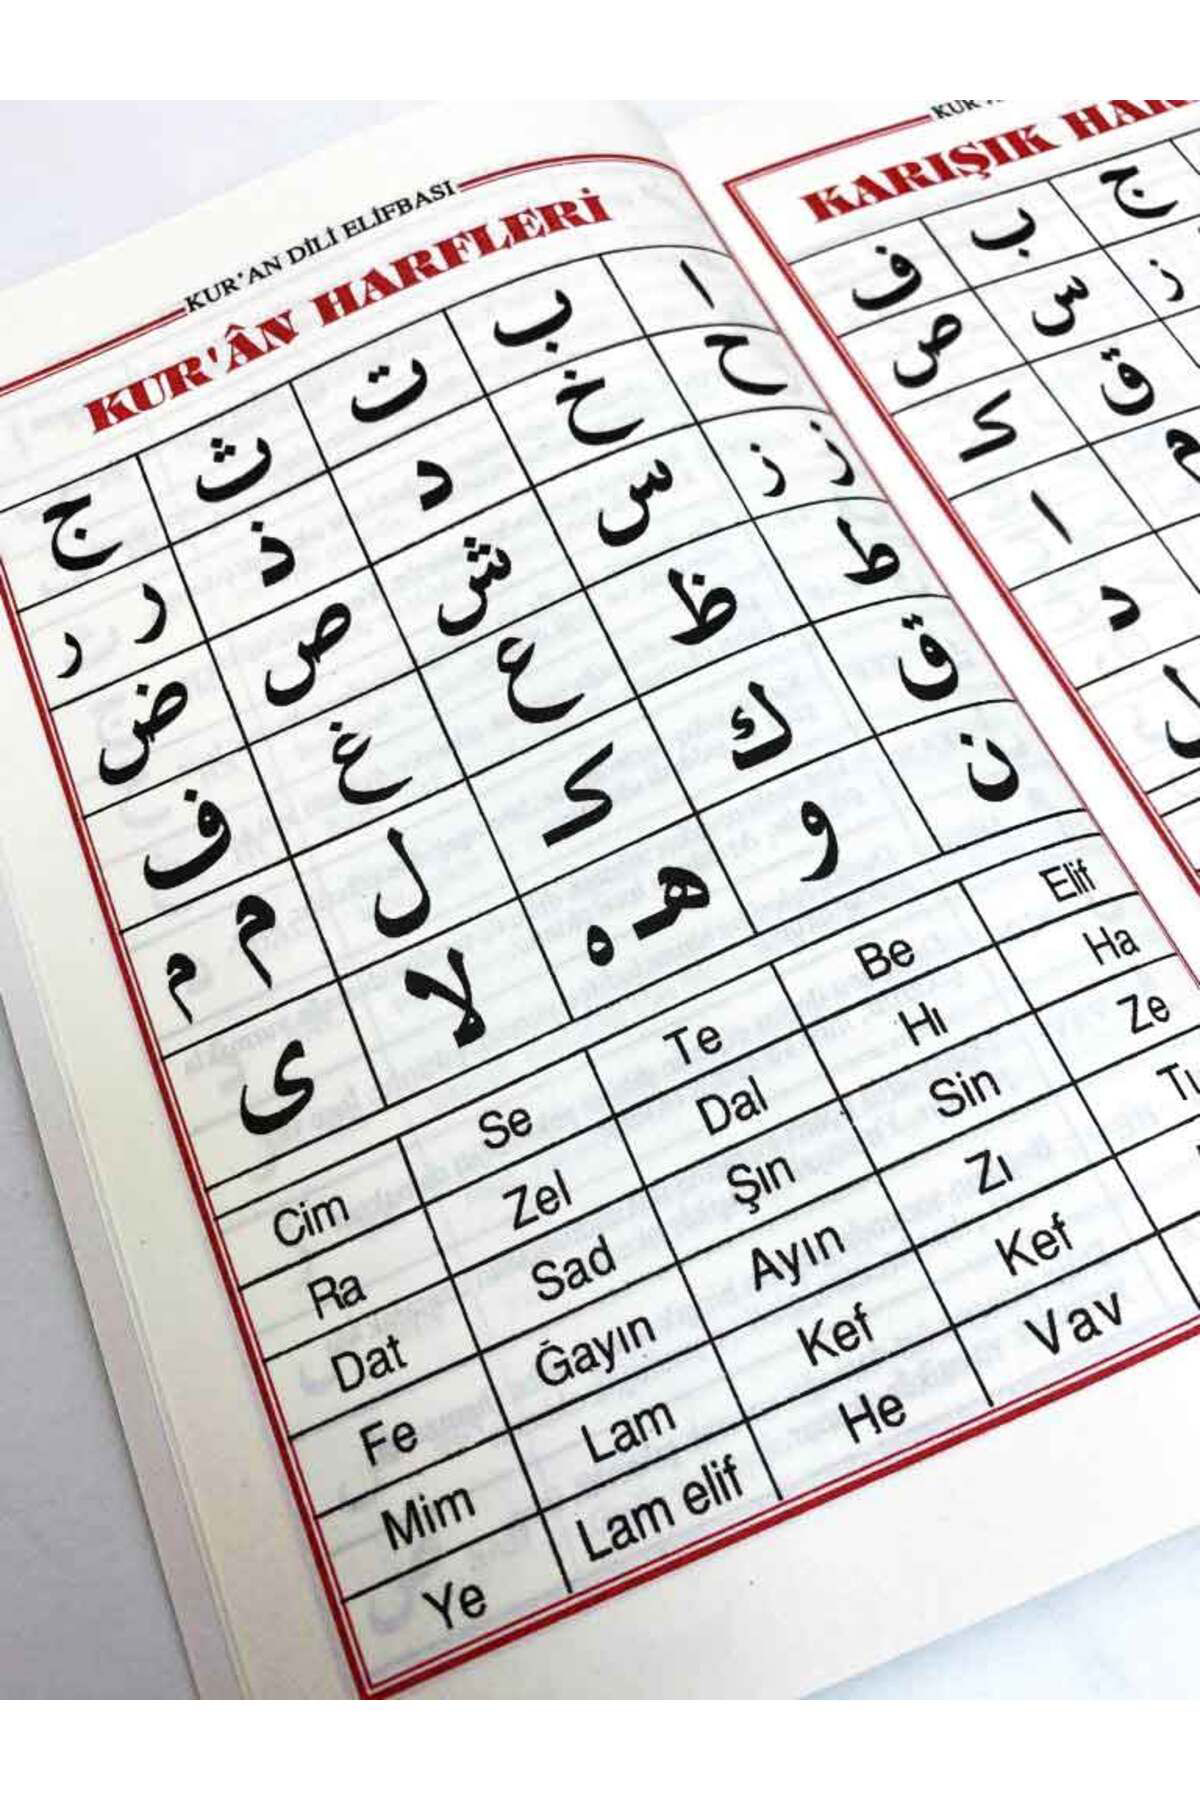 KUR'AN DİLİ ELİFBASI
KUR'ÂN HARFLERİ
ا ب ت ث ج
ح خ د ذ ر ر
ز ز س ش ص ض
ط ظ ع غ ف
ق ك ک ل م م
ن و هـ ه لا ى
Elif Be Te Se Cim
Ha Hı Dal Zel Ra
Ze Sin Şın Sad Dat
Tı Zı Ayın Ğayın Fe
Kef Kef Lam Mim
Vav He Lam elif Ye
KARIŞIK
ج ب ف
ز س ص
ق ک
ه ا
د
ل